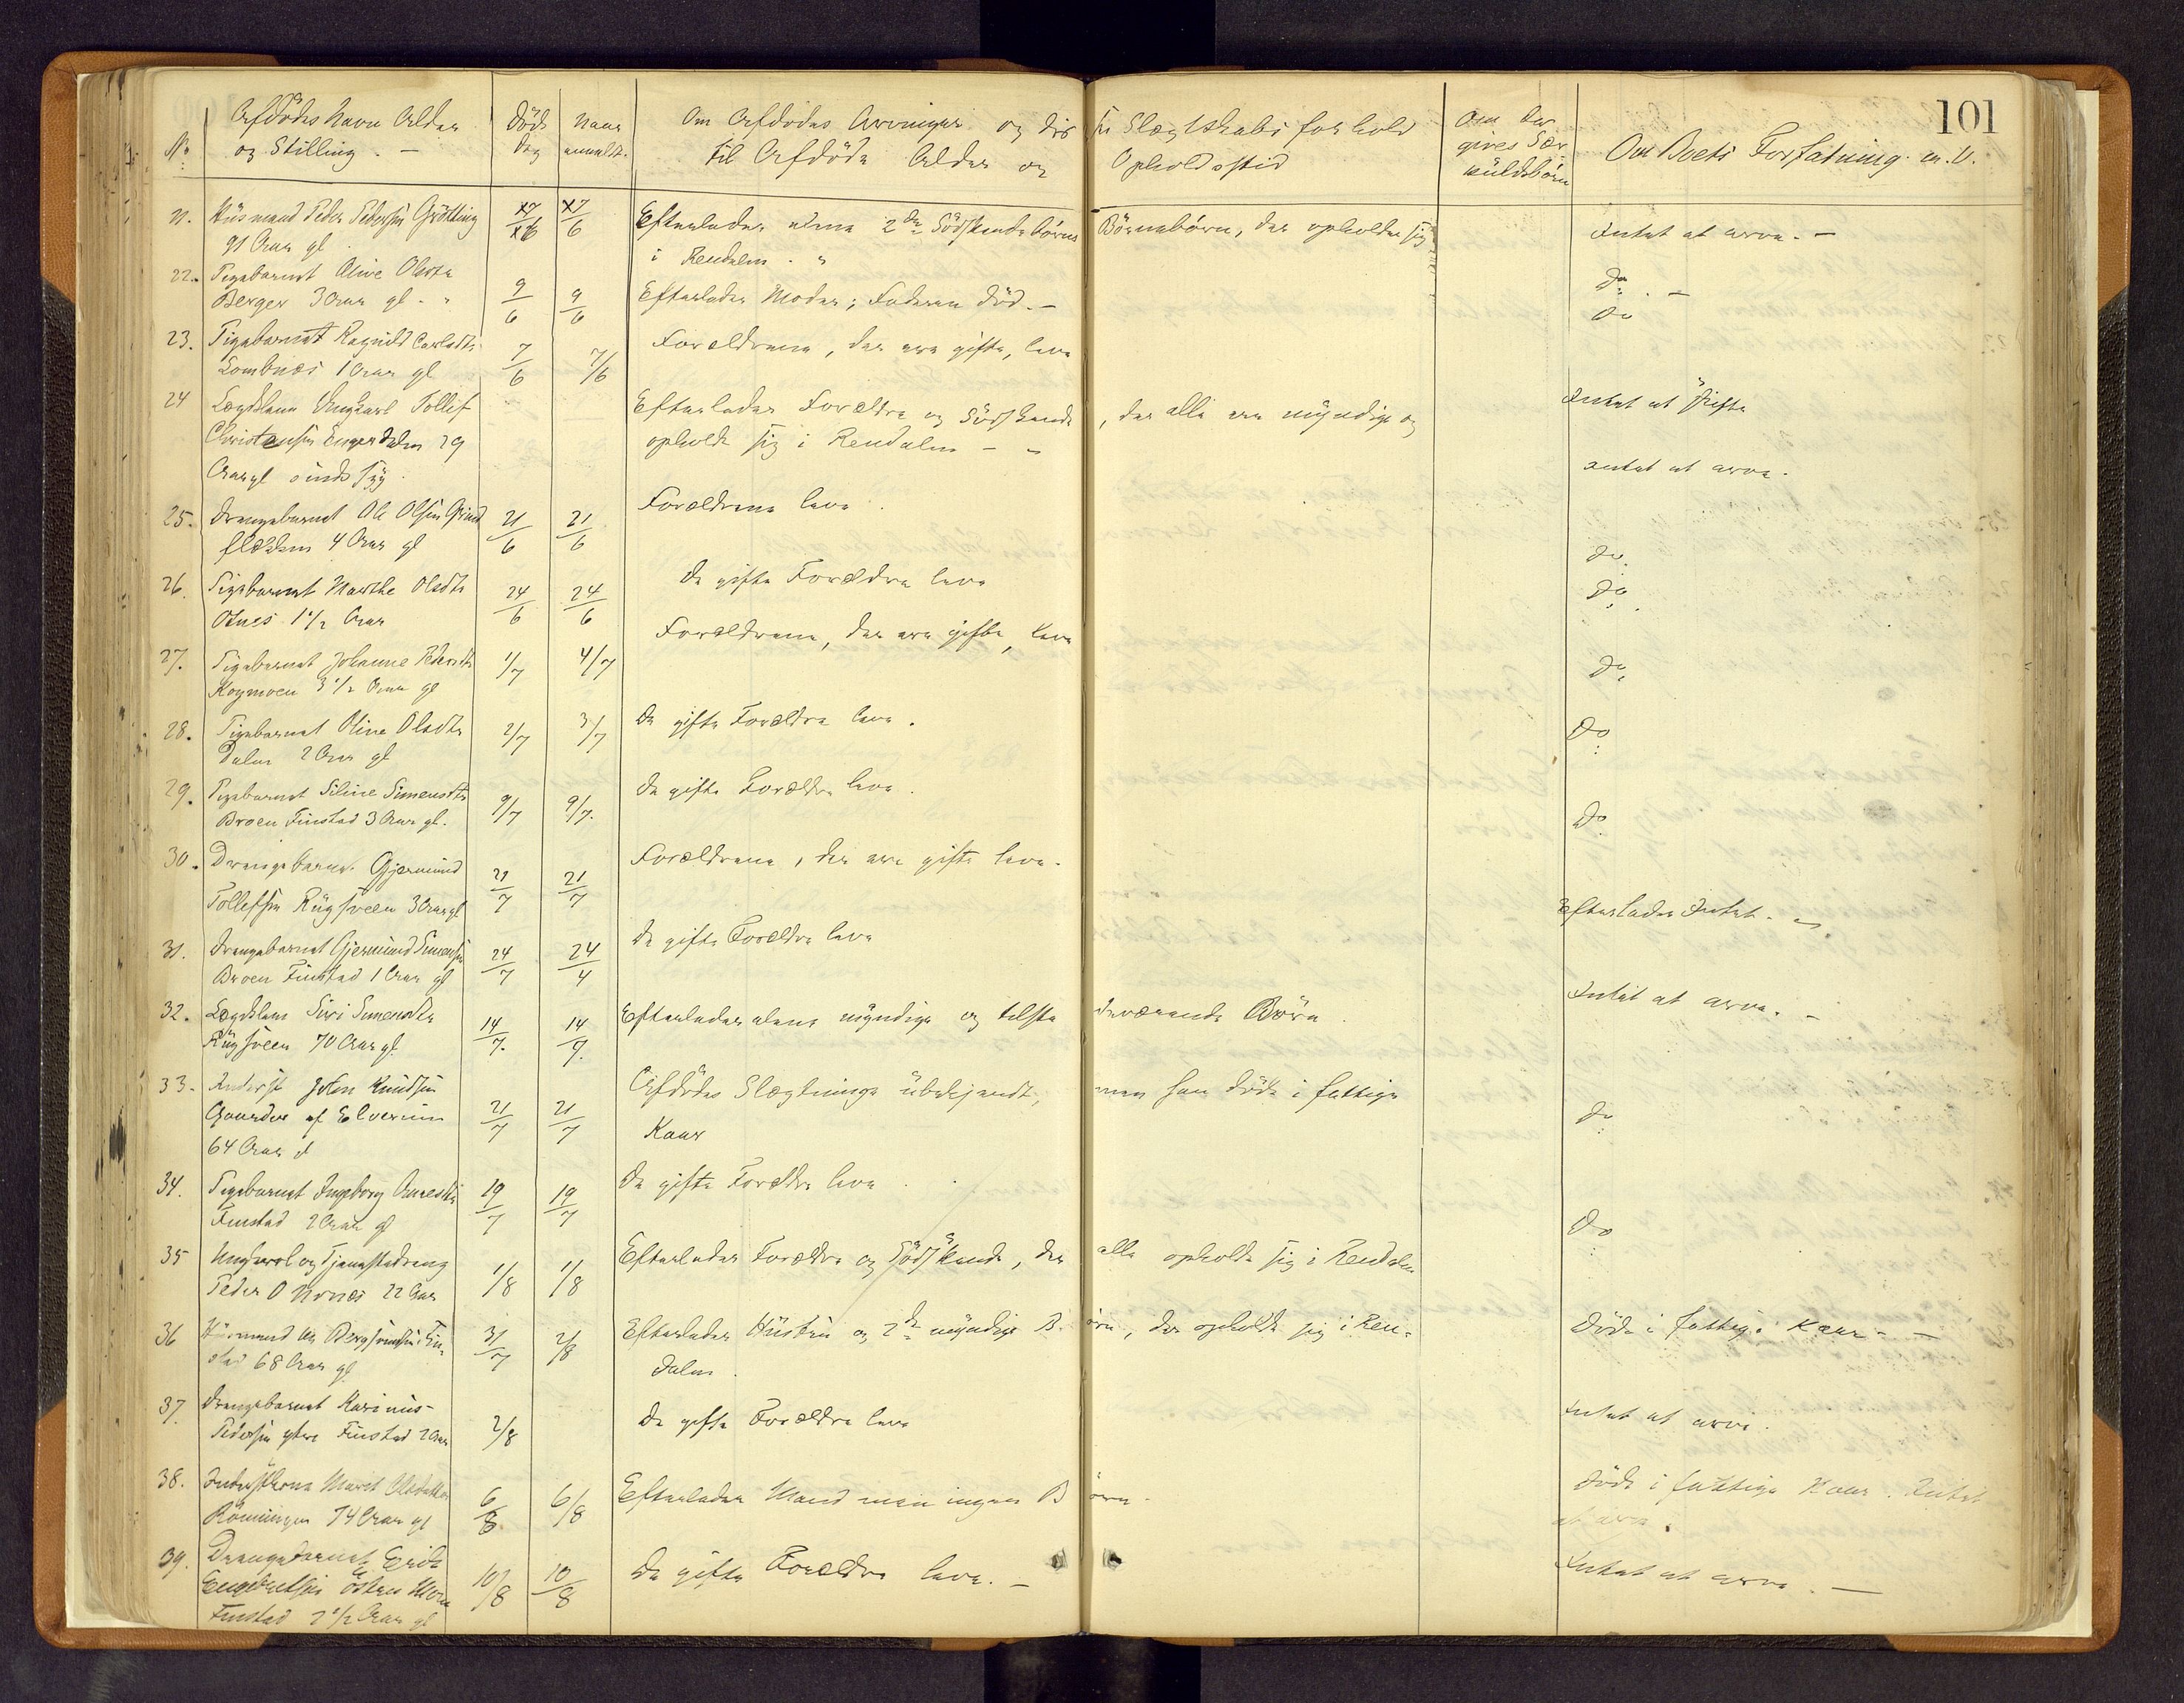 101
No
Afdödes Navn Alder
og Stilling. —
Döds
dag
Naar
anmeldt.
Om Afdödes Arvinger og disses Slægtskabs forhold
til Afdöde Alder og Opholdssted
Om der
gives Sær
kuldsbörn
Om Boets Forfatning m. V.
21. Husmand Peder Pedersen Grötting
91 Aar gl
17/6 17/6
Efterlader alene 2de Södskendebörns Börnebörn, der opholder sig
i Rendalen. "
Intet at arve. —
22. Pigebarnet Oline Olsdtr
Berger 3 Aar gl. "
9/6 9/6
Efterlader Moder; Faderen död. —
Do. —
23. Pigebarnet Ragnild Carlsdtr
Lombnæs 1 Aar gl
7/6 7/6
Forældrene, der ere gifte, leve
Do
24 Lægdslem Ungkarl Tollef
Christensen Engerdalen 29
Aar gl sindssyg.
Efterlader Forældre og Södskende, der alle ere myndige og
opholde sig i Rendalen — "
Intet at skifte
25. Drengebarnet Ole Olsen Grind
flækken 4 Aar gl
21/6 21/6
Forældrene leve.
Intet at arve.
26. Pigebarnet Marthe Olsdtr
Otnes 1 1/2 Aar
24/6 24/6
De gifte Forældre leve
Do.
27. Pigebarnet Johanne Pedersdtr
Haymoen 3 1/2 Aar gl
1/7 4/7
Forældrene, der ere gifte, leve
Do.
28. Pigebarnet Oline Olsdtr
Dalen 2 Aar gl
2/7 3/7
De gifte Forældre leve.
Do
29. Pigebarnet Siline Simensdtr
Broen Finstad 3 Aar gl.
9/7 9/7.
De gifte Forældre leve.
Do
30. Drengebarnet Gjermund
Tollefsen Rugsveen 3 Aar gl
21/7 21/7
Forældrene, der ere gifte leve.
Do
31. Drengebarnet Gjermund Simensen
Broen Finstad 1 Aar gl
24/7 24/4
De gifte Forældre leve
Efterlader Intet. —
32. Lægdslem Siri Simensdtr
Rugsveen 70 Aar gl
14/7. 14/7.
Efterlader alene myndige og tilstedeværende Börn
Intet at arve. —
33. Inderst John Knudsen
Gaarder af Elverum
64 Aar
21/7 21/7
Afdödes Slægtninge ubekjendt, men han döde i fattige
Kaar
Do
34. Pigebarnet Ingeborg Arnesdtr
Finstad 2 Aar gl
19/7 19/7
De gifte Forældre leve.
Do
35 Ungkarl og Tjenestedreng
Peder O Urnæs 22 Aar
1/8 1/8
Efterlader Forældre og Södskende, der alle opholde sig i Rendalen
36 Husmand Bersvendsen Fin-
stad 68 Aar gl
31/7 2/8
Efterlader Hustru og 2de myndige Börn, der opholde sig i Ren-
dalen.
Döde i fattige Kaar. —
37 Drengebarnet Karinus
Pedersen ytre Finstad 2 Aar
2/8
De gifte Forældre leve
Intet at arve.
38. Inderstkone Marit Olsdatter
Rönningen 74 Aar gl
6/8 6/8
Efterlader Mand men ingen Börn.
Döde i fattige Kaar. Intet
at arve.
39. Drengebarnet Erik
Engebretsen Östen Moen
Finstad 2 1/2 Aar gl
10/8 10/8
De gifte Forældre leve. —
Intet at arve. —